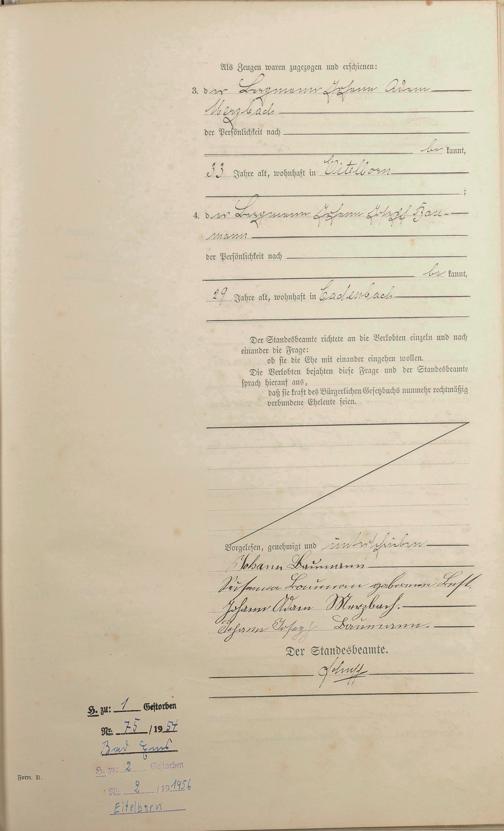 Als Zeugen waren zugezogen und erschienen:
3. der Bergmann Johann Adam
Merzbach
der Persönlichkeit nach
be kannt,
33 Jahre alt, wohnhaft in Eitelborn
;
4. der Bergmann Johann Josef Bau-
mann
der Persönlichkeit nach
be kannt,
29 Jahre alt, wohnhaft in Cadenbach
Der Standesbeamte richtete an die Verlobten einzeln und nach
einander die Frage:
ob sie die Ehe mit einander eingehen wollen.
Die Verlobten bejahten diese Frage und der Standesbeamte
sprach hierauf aus,
daß sie kraft des Bürgerlichen Gesetzbuchs nunmehr rechtmäßig
verbundene Eheleute seien.
Vorgelesen, genehmigt und unterschrieben
Johann Baumann
Susanna Bauman geborene
Johann Adam Merzbach.
Johann Josef Baumann.
Der Standesbeamte.
H. zu: 1 Gestorben
Nr. 75 /19 54
Bad Ems
H. zu: 2 Gestorben
Nr. 2 / 1956
Eitelborn
Form. B.